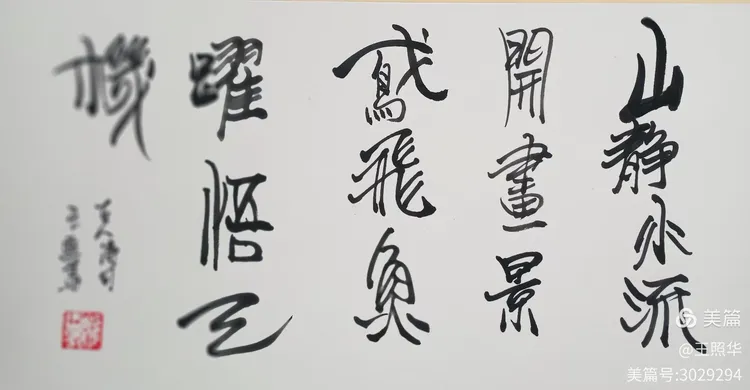 山静水流
開畫景
鳶飛魚
躍悟天
機
美篇
@王照华
美篇号:3029294